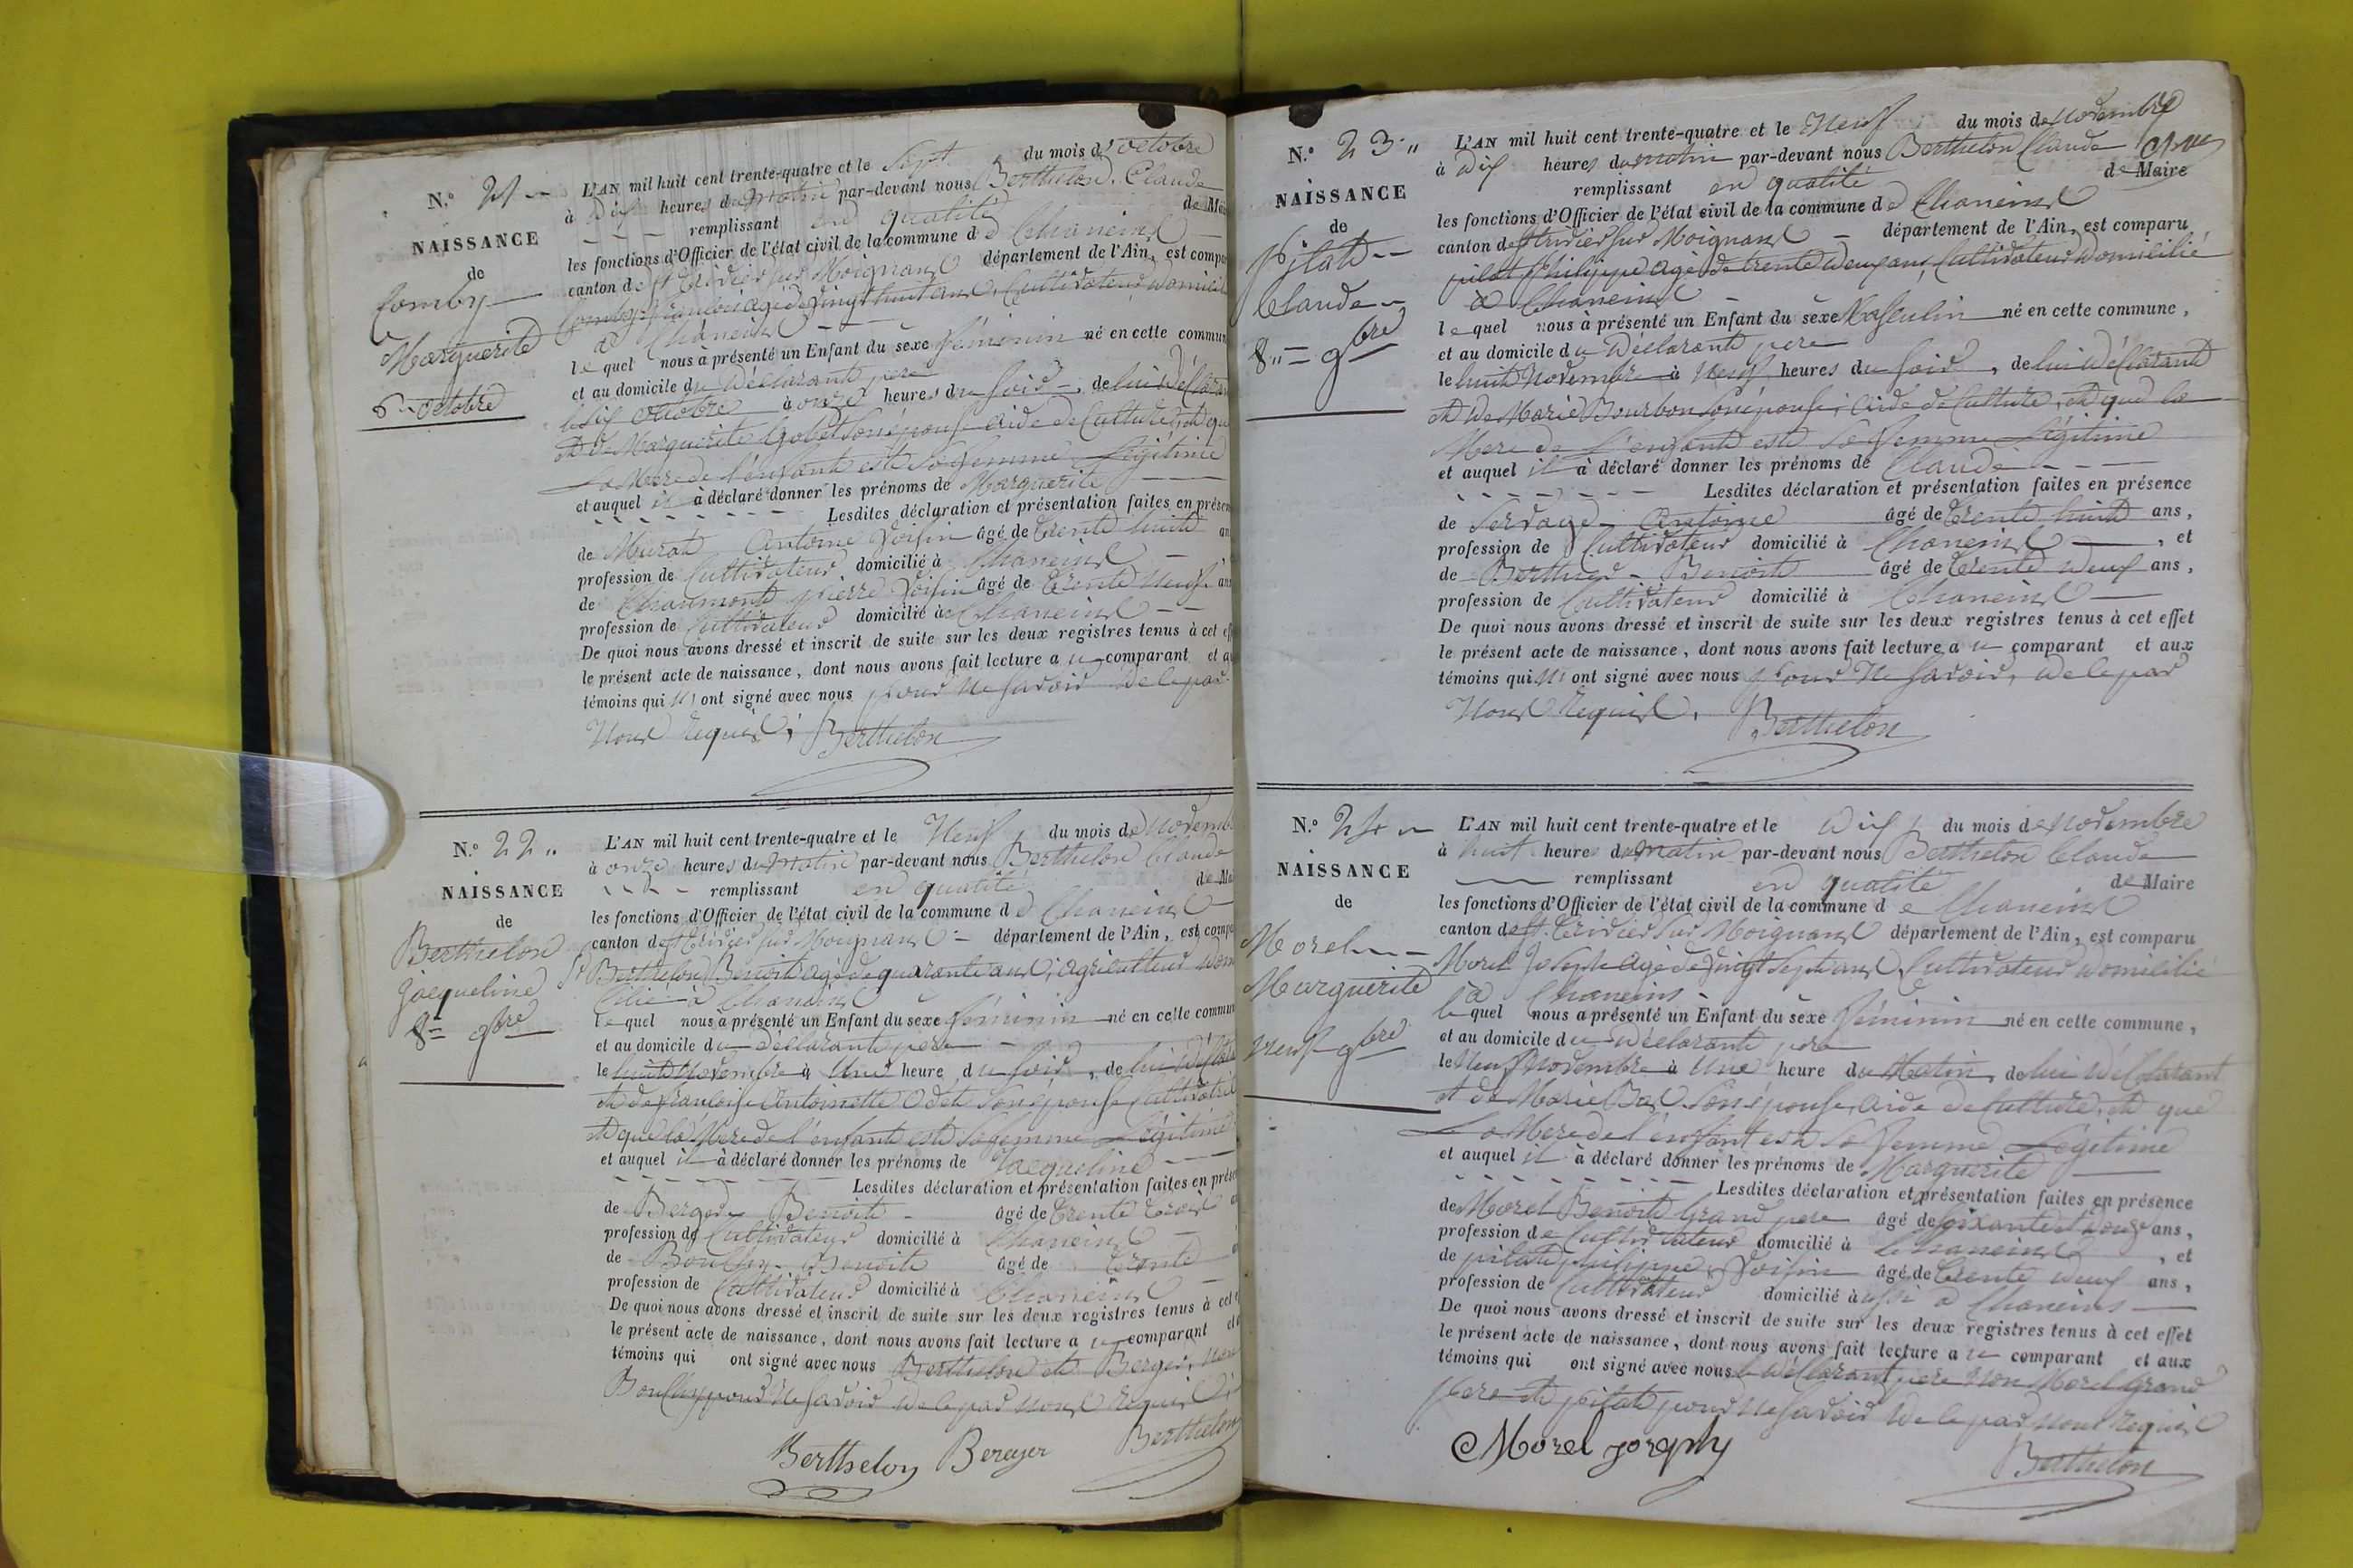 N.º 21
NAISSANCE
de
Comby
Marguerite
6 octobre
L'AN mil huit cent trente-quatre et le Sept du mois d'octobre
à Dix heures du matin par-devant nous Berthelon Claude
remplissant en qualité de Mai
les fonctions d'Officier de l'état civil de la commune de Chaneins
canton de St Tridier sur Moignans département de l'Ain, est compa
Comby François agé de vingt huit ans, Cultivateur domicili
à Chaneins
lequel nous à présenté un Enfant du sèxe féminin né en cette commun
et au domicile du Déclarant père
le six octobre à onze heures du soir, de lui Déclaran
et de Marguerite Gobet son épouse aide de Culture, et que
La Mere de l'enfant est Sa femme Légitime
et auquel il à déclaré donner les prénoms de Marguerite
Lesdites déclaration et présentation faites en présen
de Murat Antoine Voisin âgé de trente huit an
profession de Cultivateur domicilié à Chaneins
de Chaumont pierre Voisin âgé de trente Neuf ans
profession de Cultivateur domicilié à Chaneins
De quoi nous avons dressé et inscrit de suite sur les deux registres tenus à cet eff
le présent acte de naissance, dont nous avons fait lecture au comparant et au
témoins qui N'ont signé avec nous pour Ne savoir de ce par
Nous Requis. Berthelon
N.º 22
NAISSANCE
de
Berthelon
Jacqueline
8 9bre
L'AN mil huit cent trente-quatre et le Neuf du mois de novemb
à onze heures du matin par-devant nous Berthelon Claude
remplissant en qualité de Mai
les fonctions d'Officier de l'état civil de la commune de Chaneins
canton de St Tridier sur Moignans département de l'Ain, est compa
Sr Berthelon Benoit agé de quarante ans, agriculteur domi
cilié à Chaneins
lequel nous à présenté un Enfant du sèxe féminin né en cette commun
et au domicile du déclarant père
le huit Novembre à Une heure du soir, de lui déclara
et de françoise Antoinette Odet son épouse Cultivatrice
et que la Mere de l'enfant est Sa femme Légitime
et auquel il à déclaré donner les prénoms de Jacqueline
Lesdites déclaration et présentation faites en prése
de Berger Benoit âgé de trente trois a
profession de Cultivateur domicilié à Chaneins
de Bouchy Benoit âgé de trente
profession de Cultivateur domicilié à Chaneins
De quoi nous avons dressé et inscrit de suite sur les deux registres tenus à cet e
le présent acte de naissance, dont nous avons fait lecture au comparant et a
témoins qui ont signé avec nous Berthelon et Berger, Non
Bouchy pour Ne savoir de ce par nous requis
Berthelon Bereyer Berthelon
N.º 23
NAISSANCE
de
Pilat
Claude
8 9bre
L'AN mil huit cent trente-quatre et le Neuf du mois de novembre
à Dix heures du matin par-devant nous Berthelon Claude
remplissant en qualité de Maire
les fonctions d'Officier de l'état civil de la commune de Chaneins
canton de St Tridier sur Moignans département de l'Ain, est comparu
pilat Philippe agé de trente deux ans, Cultivateur domicilié
à Chaneins
lequel nous à présenté un Enfant du sèxe Masculin né en cette commune,
et au domicile du Déclarant père
le huit Novembre à Neuf heures du soir, de lui déclarant
et de Marie Bourbon son épouse, aide de Culture, et que la
Mere de l'enfant est Sa femme Légitime
et auquel il à déclaré donner les prénoms de Claude
Lesdites déclaration et présentation faites en présence
de Servage Antoine âgé de trente huit ans,
profession de Cultivateur domicilié à Chaneins, et
de Berthier Benoit âgé de trente deux ans,
profession de Cultivateur domicilié à Chaneins
De quoi nous avons dressé et inscrit de suite sur les deux registres tenus à cet effet
le présent acte de naissance, dont nous avons fait lecture au comparant et aux
témoins qui N'ont signé avec nous pour Ne savoir, de ce par
Nous Requis. Berthelon
N.º 24
NAISSANCE
de
Morel
Marguerite
neuf 9bre
L'AN mil huit cent trente-quatre et le Dix du mois de novembre
à huit heures du matin par-devant nous Berthelon Claude
remplissant en qualité de Maire
les fonctions d'Officier de l'état civil de la commune de Chaneins
canton de St Tridier sur Moignans département de l'Ain, est comparu
Morel Joseph agé de vingt sept ans, Cultivateur domicilié
à Chaneins
lequel nous a présenté un Enfant du sèxe féminin né en cette commune,
et au domicile du déclarant père
le Neuf Novembre à Une heure du Matin, de lui déclarant
et de Marie Bas son épouse, aide de culture, et que
La Mere de l'enfant est Sa femme Légitime
et auquel il à déclaré donner les prénoms de Marguerite
Lesdites déclaration et présentation faites en présence
de Morel Benoit Grand père âgé de soixante et douze ans,
profession de Cultivateur domicilié à Chaneins, et
de pilat philippe, Voisin âgé de trente deux ans,
profession de Cultivateur domicilié aussi à Chaneins
De quoi nous avons dressé et inscrit de suite sur les deux registres tenus à cet effet
le présent acte de naissance, dont nous avons fait lecture au comparant et aux
témoins qui ont signé avec nous le déclarant père Non Morel Grand
père et pilat pour Ne savoir de ce par nous requis
Morel joseph Berthelon